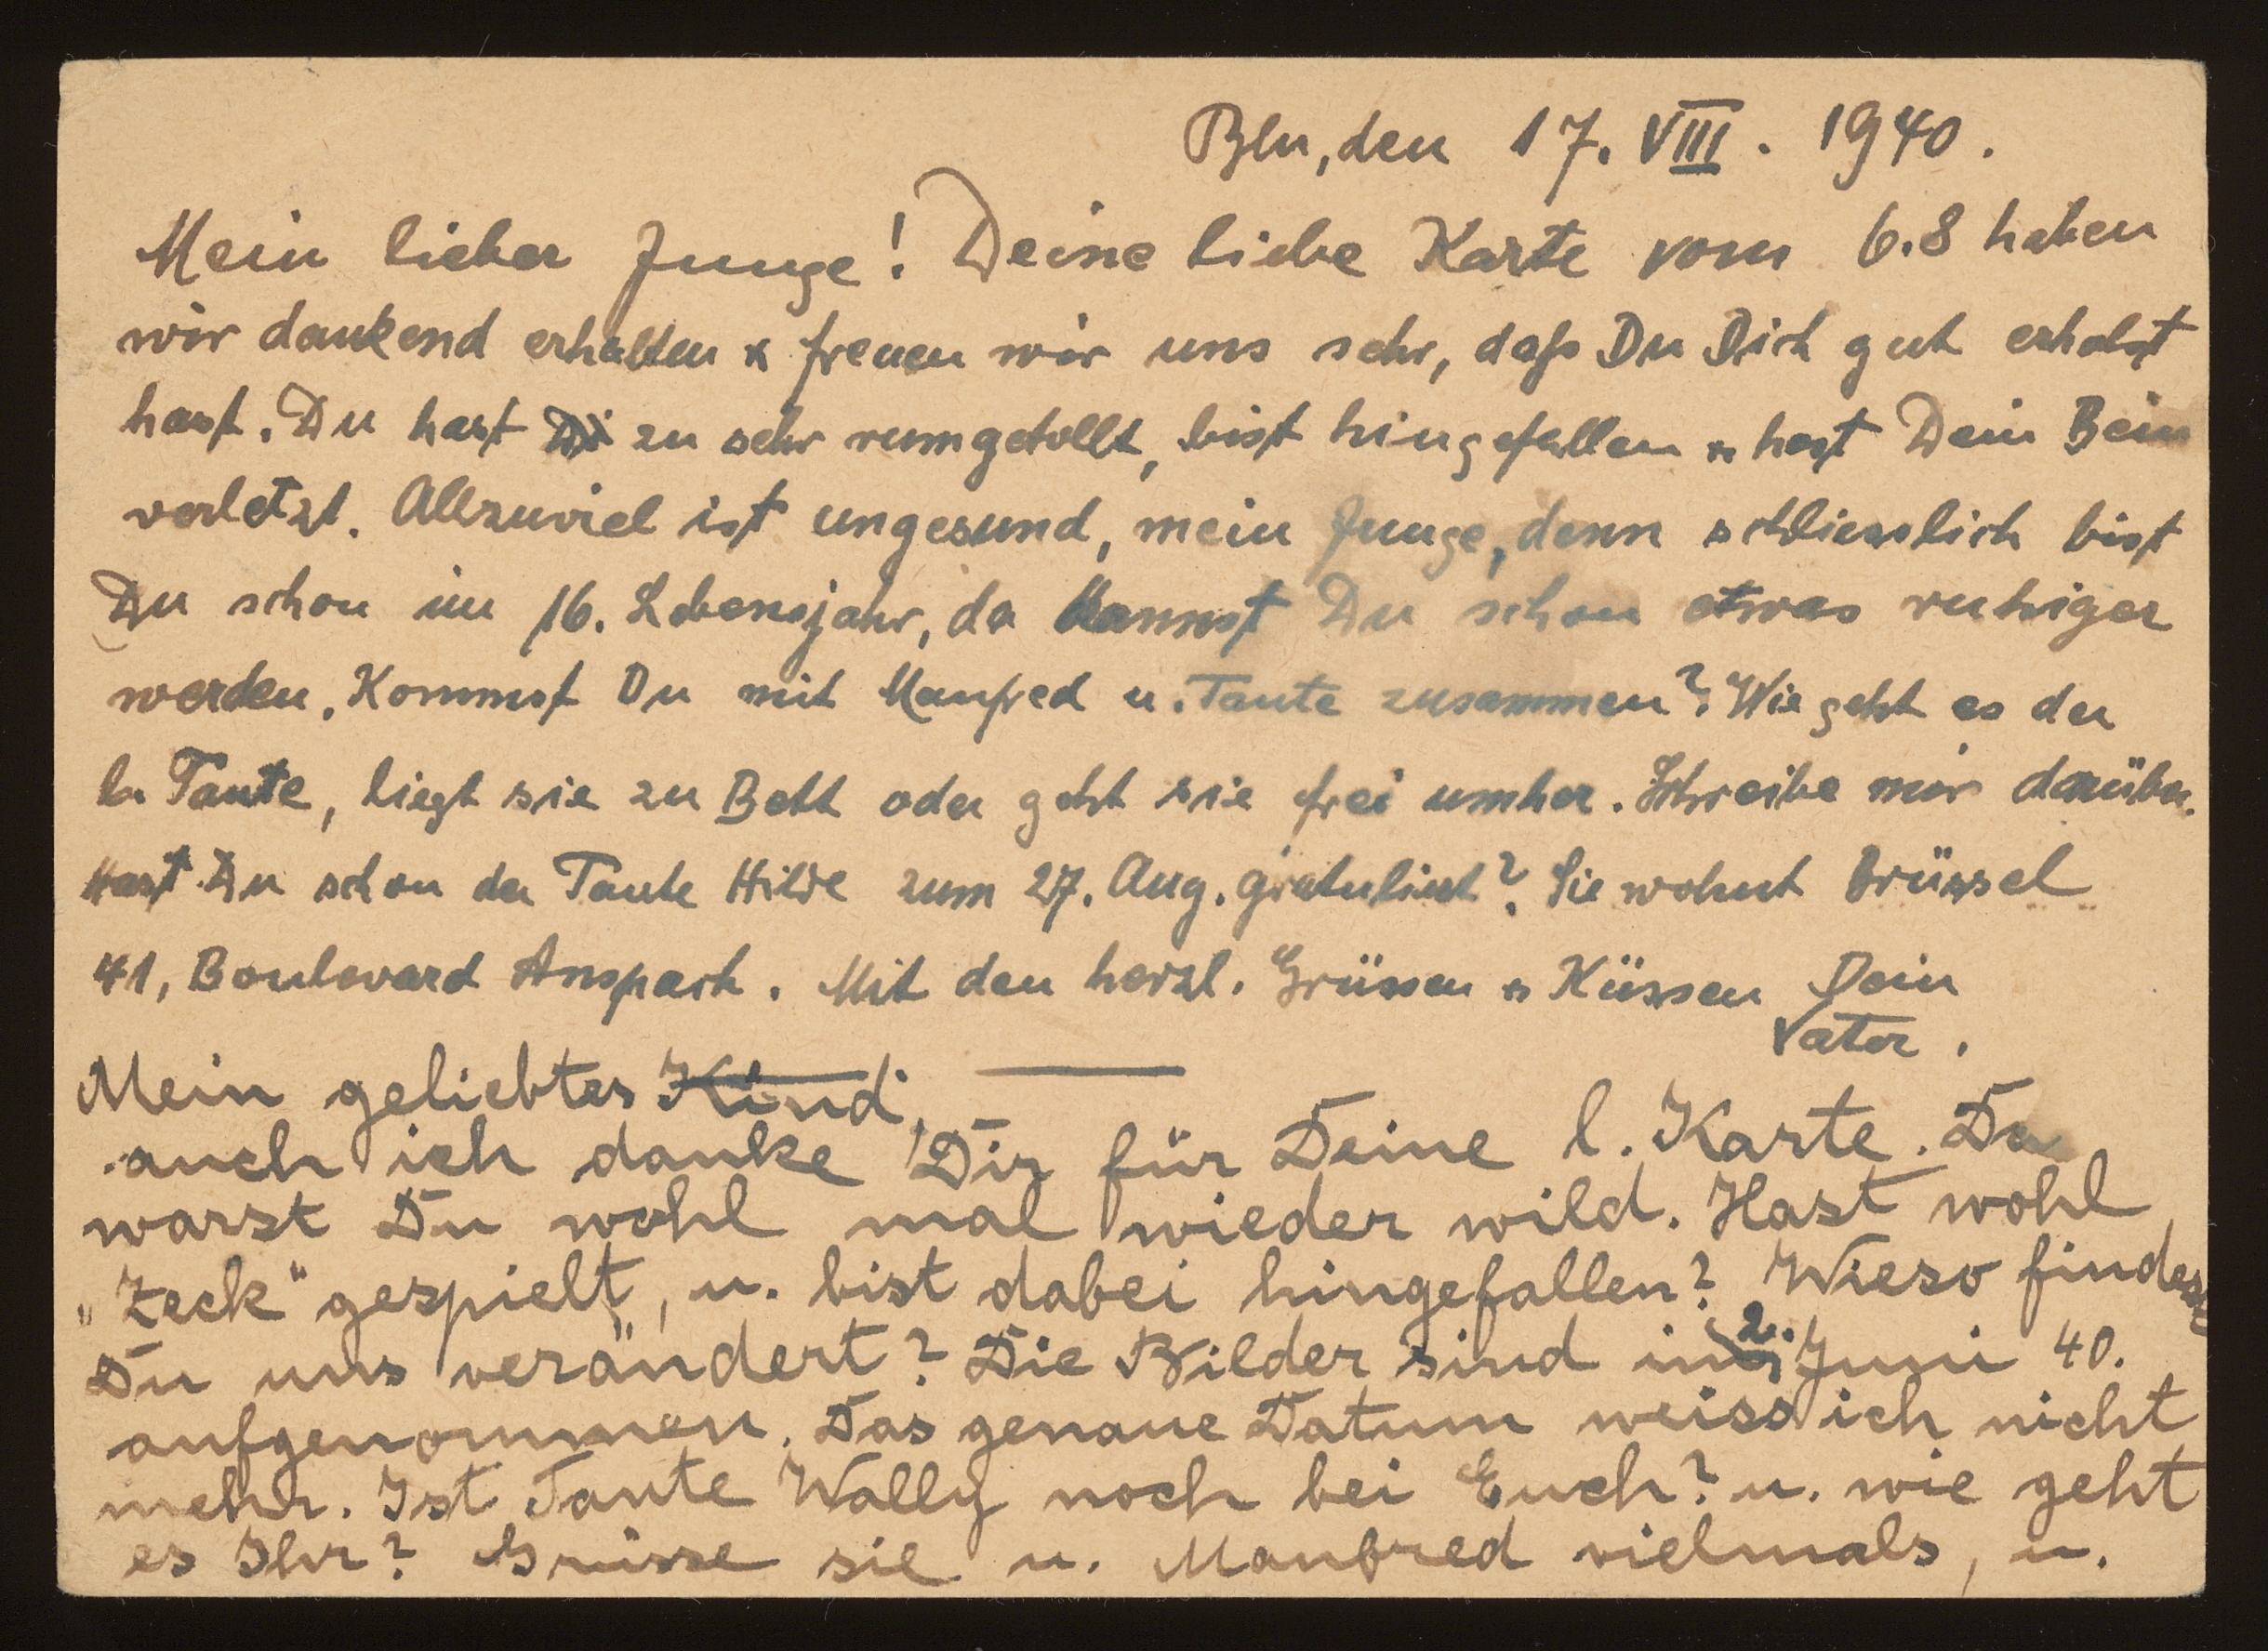 Bln, den 17. VIII. 1940.
Mein lieber Junge! Deine liebe Karte vom 6.8 haben
wir dankend erhalten u freuen wir uns sehr, daß Du Dich gut erholst
hast. Du hast zu sehr rumgetollt, bist hingefallen u hast Dein Bein
verletzt. Allzuviel ist ungesund, mein Junge, denn schliesslich bist
Du schon im 16. Lebensjahr, da kannst Du schon etwas ruhiger
werden. Kommst Du mit Manfred u. Tante zusammen? Wie geht es der
l. Tante, liegt sie zu Bett oder geht sie frei umher. Schreibe mir darüber.
Hast Du schon der Tante Hilde zum 27. Aug. gratuliert? Sie wohnt Brüssel
41, Boulevard Anspach. Mit den herzl. Grüssen u Küssen Dein
Vater.
Mein geliebtes Kind,
auch ich danke Dir für Deine l. Karte. Da
warst Du wohl mal wieder wild. Hast wohl
„Zeck“ gespielt, u. bist dabei hingefallen? Wieso findest
Du uns verändert? Die Bilder sind im 2. Juni 40.
aufgenommen. Das genaue Datum weiss ich nicht
mehr. Ist Tante Wally noch bei Euch? u. wie geht
es Ihr? Grüsse sie u. Manfred vielmals, u.